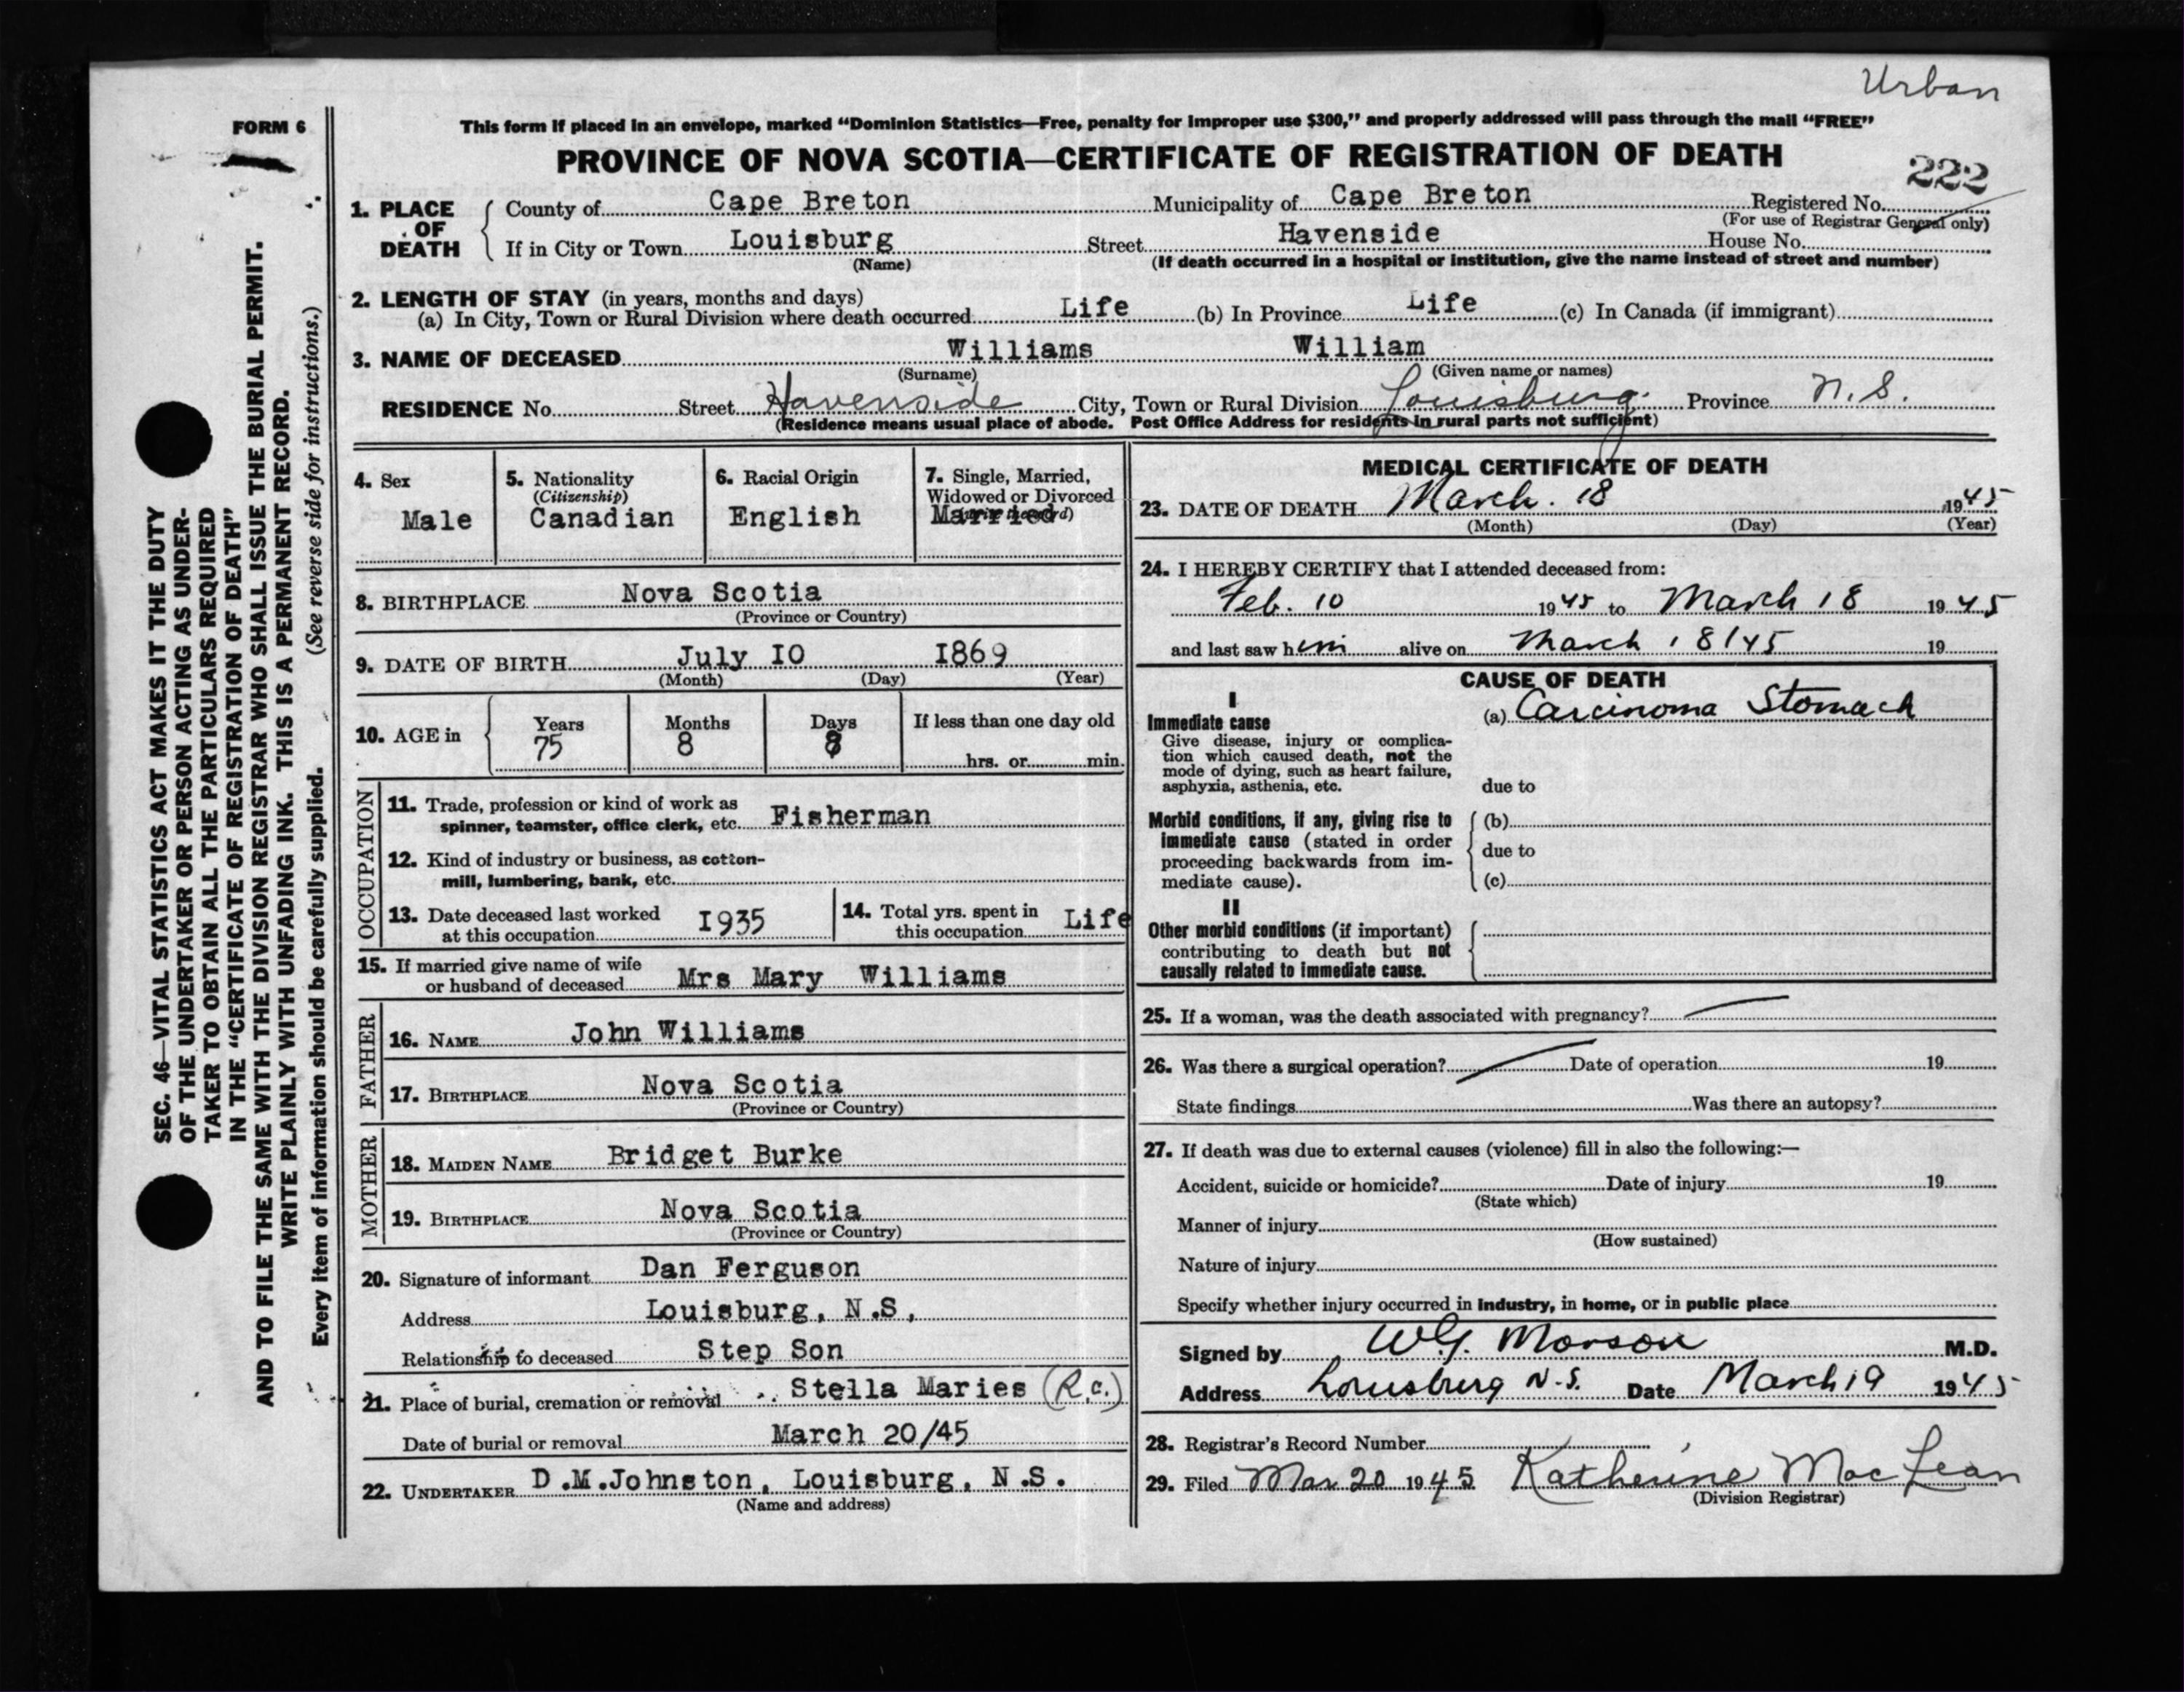 Urban
FORM 6
This form if placed in an envelope, marked “Dominion Statistics—Free, penalty for improper use $300,” and properly addressed will pass through the mail “FREE”
PROVINCE OF NOVA SCOTIA—CERTIFICATE OF REGISTRATION OF DEATH
222
1. PLACE OF DEATH
County of Cape Breton Municipality of Cape Breton Registered No.
(For use of Registrar General only)
If in City or Town Louisburg Street Havenside House No.
(Name) (If death occurred in a hospital or institution, give the name instead of street and number)
2. LENGTH OF STAY (in years, months and days)
(a) In City, Town or Rural Division where death occurred Life (b) In Province Life (c) In Canada (if immigrant)
3. NAME OF DECEASED Williams William
(Surname) (Given name or names)
RESIDENCE No. Street Havenside City, Town or Rural Division Louisburg. Province N.S.
(Residence means usual place of abode. Post Office Address for residents in rural parts not sufficient)
4. Sex
Male
5. Nationality
(Citizenship)
Canadian
6. Racial Origin
English
7. Single, Married,
Widowed or Divorced
Married
8. BIRTHPLACE Nova Scotia
(Province or Country)
9. DATE OF BIRTH July 10 1869
(Month) (Day) (Year)
10. AGE in Years Months Days If less than one day old
75 8 8 hrs. or min.
OCCUPATION
11. Trade, profession or kind of work as
spinner, teamster, office clerk, etc. Fisherman
12. Kind of industry or business, as cotton-
mill, lumbering, bank, etc.
13. Date deceased last worked
at this occupation 1935
14. Total yrs. spent in
this occupation Life
15. If married give name of wife
or husband of deceased Mrs Mary Williams
FATHER
16. NAME John Williams
17. BIRTHPLACE Nova Scotia
(Province or Country)
MOTHER
18. MAIDEN NAME Bridget Burke
19. BIRTHPLACE Nova Scotia
(Province or Country)
20. Signature of informant Dan Ferguson
Address Louisburg, N.S,
Relationship to deceased Step Son
21. Place of burial, cremation or removal Stella Maries (R.C.)
Date of burial or removal March 20/45
22. UNDERTAKER D.M.Johnston, Louisburg, N.S.
(Name and address)
MEDICAL CERTIFICATE OF DEATH
23. DATE OF DEATH March. 18 1945
(Month) (Day) (Year)
24. I HEREBY CERTIFY that I attended deceased from:
Feb. 10 1945 to March 18 1945
and last saw him alive on March 18/45 19
CAUSE OF DEATH
I
Immediate cause (a) Carcinoma Stomach
Give disease, injury or complica-
tion which caused death, not the
mode of dying, such as heart failure,
asphyxia, asthenia, etc. due to
Morbid conditions, if any, giving rise to (b)
immediate cause (stated in order due to
proceeding backwards from im-
mediate cause). (c)
II
Other morbid conditions (if important)
contributing to death but not
causally related to immediate cause.
25. If a woman, was the death associated with pregnancy?
26. Was there a surgical operation? Date of operation 19
State findings Was there an autopsy?
27. If death was due to external causes (violence) fill in also the following:—
Accident, suicide or homicide? Date of injury 19
(State which)
Manner of injury
(How sustained)
Nature of injury
Specify whether injury occurred in industry, in home, or in public place
Signed by W.G. Morson M.D.
Address Louisburg N.S. Date March 19 1945
28. Registrar's Record Number
29. Filed Mar 20 1945 Katherine MacLean
(Division Registrar)
SEC. 46—VITAL STATISTICS ACT MAKES IT THE DUTY
OF THE UNDERTAKER OR PERSON ACTING AS UNDER-
TAKER TO OBTAIN ALL THE PARTICULARS REQUIRED
IN THE “CERTIFICATE OF REGISTRATION OF DEATH”
AND TO FILE THE SAME WITH THE DIVISION REGISTRAR WHO SHALL ISSUE THE BURIAL PERMIT.
WRITE PLAINLY WITH UNFADING INK. THIS IS A PERMANENT RECORD.
Every item of information should be carefully supplied. (See reverse side for instructions.)